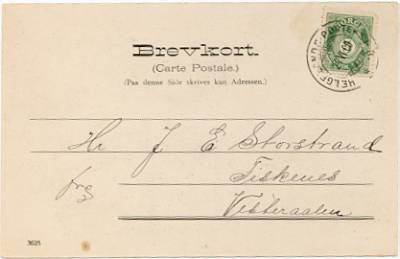 Brevkort.
(Carte Postale.)
(Paa denne Side skrives kun Adressen.)
NORGE
HELGELANDS POSTEXP
Hr J E Storstrand
frg Fiskenes
Vesteraalen
3625